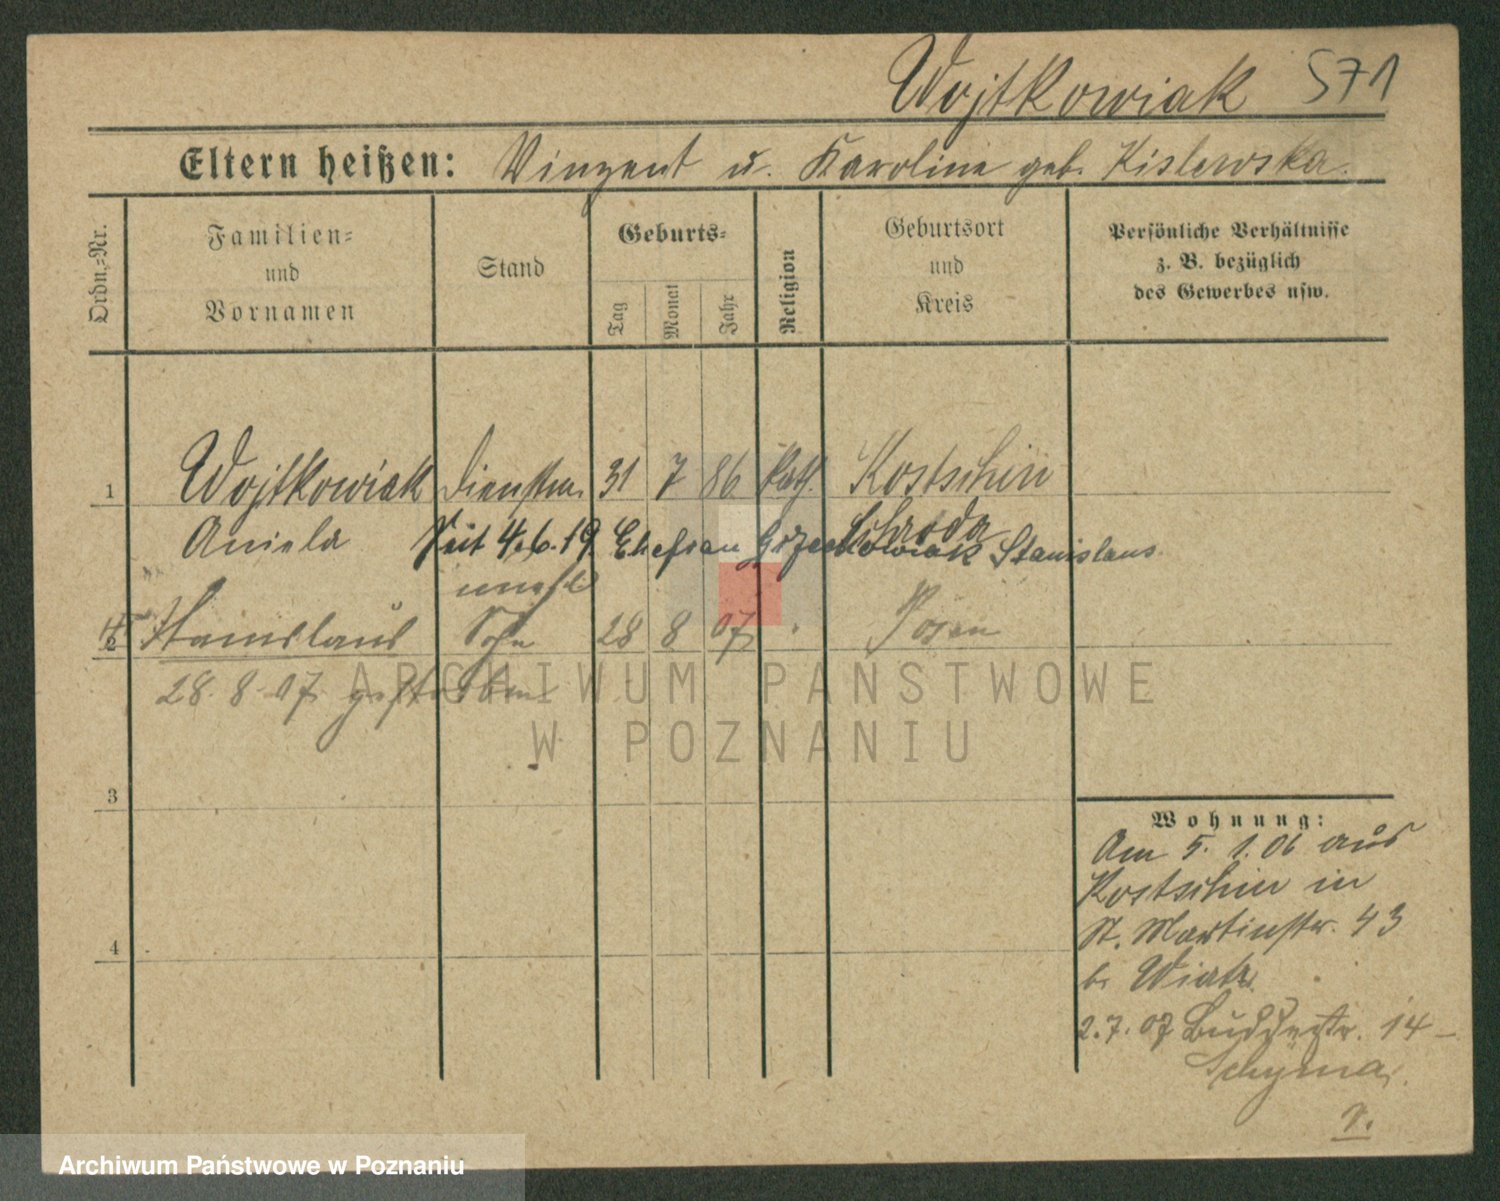 Wojtkowiak 571
Eltern heißen: Vinzent u. Karoline geb. Kislewska.
Ordn.-Nr.
Familien-
und
Vornamen
Stand
Geburts-
Tag
Monat
Jahr
Religion
Geburtsort
und
Kreis
Persönliche Verhältnisse
z. B. bezüglich
des Gewerbes usw.
1 Wojtkowiak Dienstm. 31 7 86 kath. Kostschin
Schroda
Aniela Seit 4.6.19. Ehefrau Stanislaus
unehl
2 Stanislaus Sohn 28 8 07 Posen
28. 8. 07 gestorben
3
4
Wohnung:
Am 5. 1. 06 aus
Kostschin in
St. Martinstr. 43
b. Wiatr.
2.7.07 Buddestr. 14 –
Schyma.
V.
ARCHIWUM PAŃSTWOWE
W POZNANIU
Archiwum Państwowe w Poznaniu